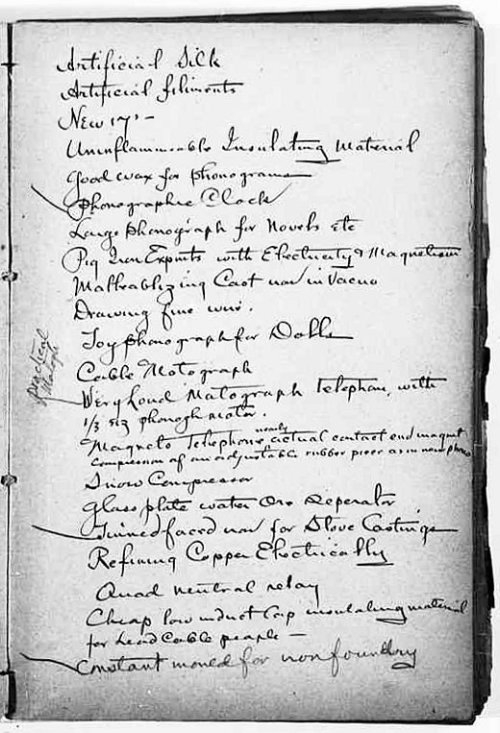 Artificial Silk
Artificial filiments
New
Uninflammable Insulating Material
Good wax for phonograms
Phonographic Clock
Large Phonograph for Novels etc
Pig Iron Expmts with Electricity & Magnetism
Malleablizing Cast iron in Vacuo
Drawing fine wire.
Toy phonograph for Dolls
Cable Motograph
practical
Very Loud Motograph telephone with
1/3 siz phonogh motor.
Magneto telephone nearly actual contact end magnet
Compression of an adjustable rubber piece as in new phono
Snow Compressor
Glass plate water Ore Seperator
Tinned faced iron for Stove Castings
Refining Copper Electrically
Quad neutral relay
Cheap low induct Cop insulating material
for Lead Cable people —
Constant moned for iron foundry